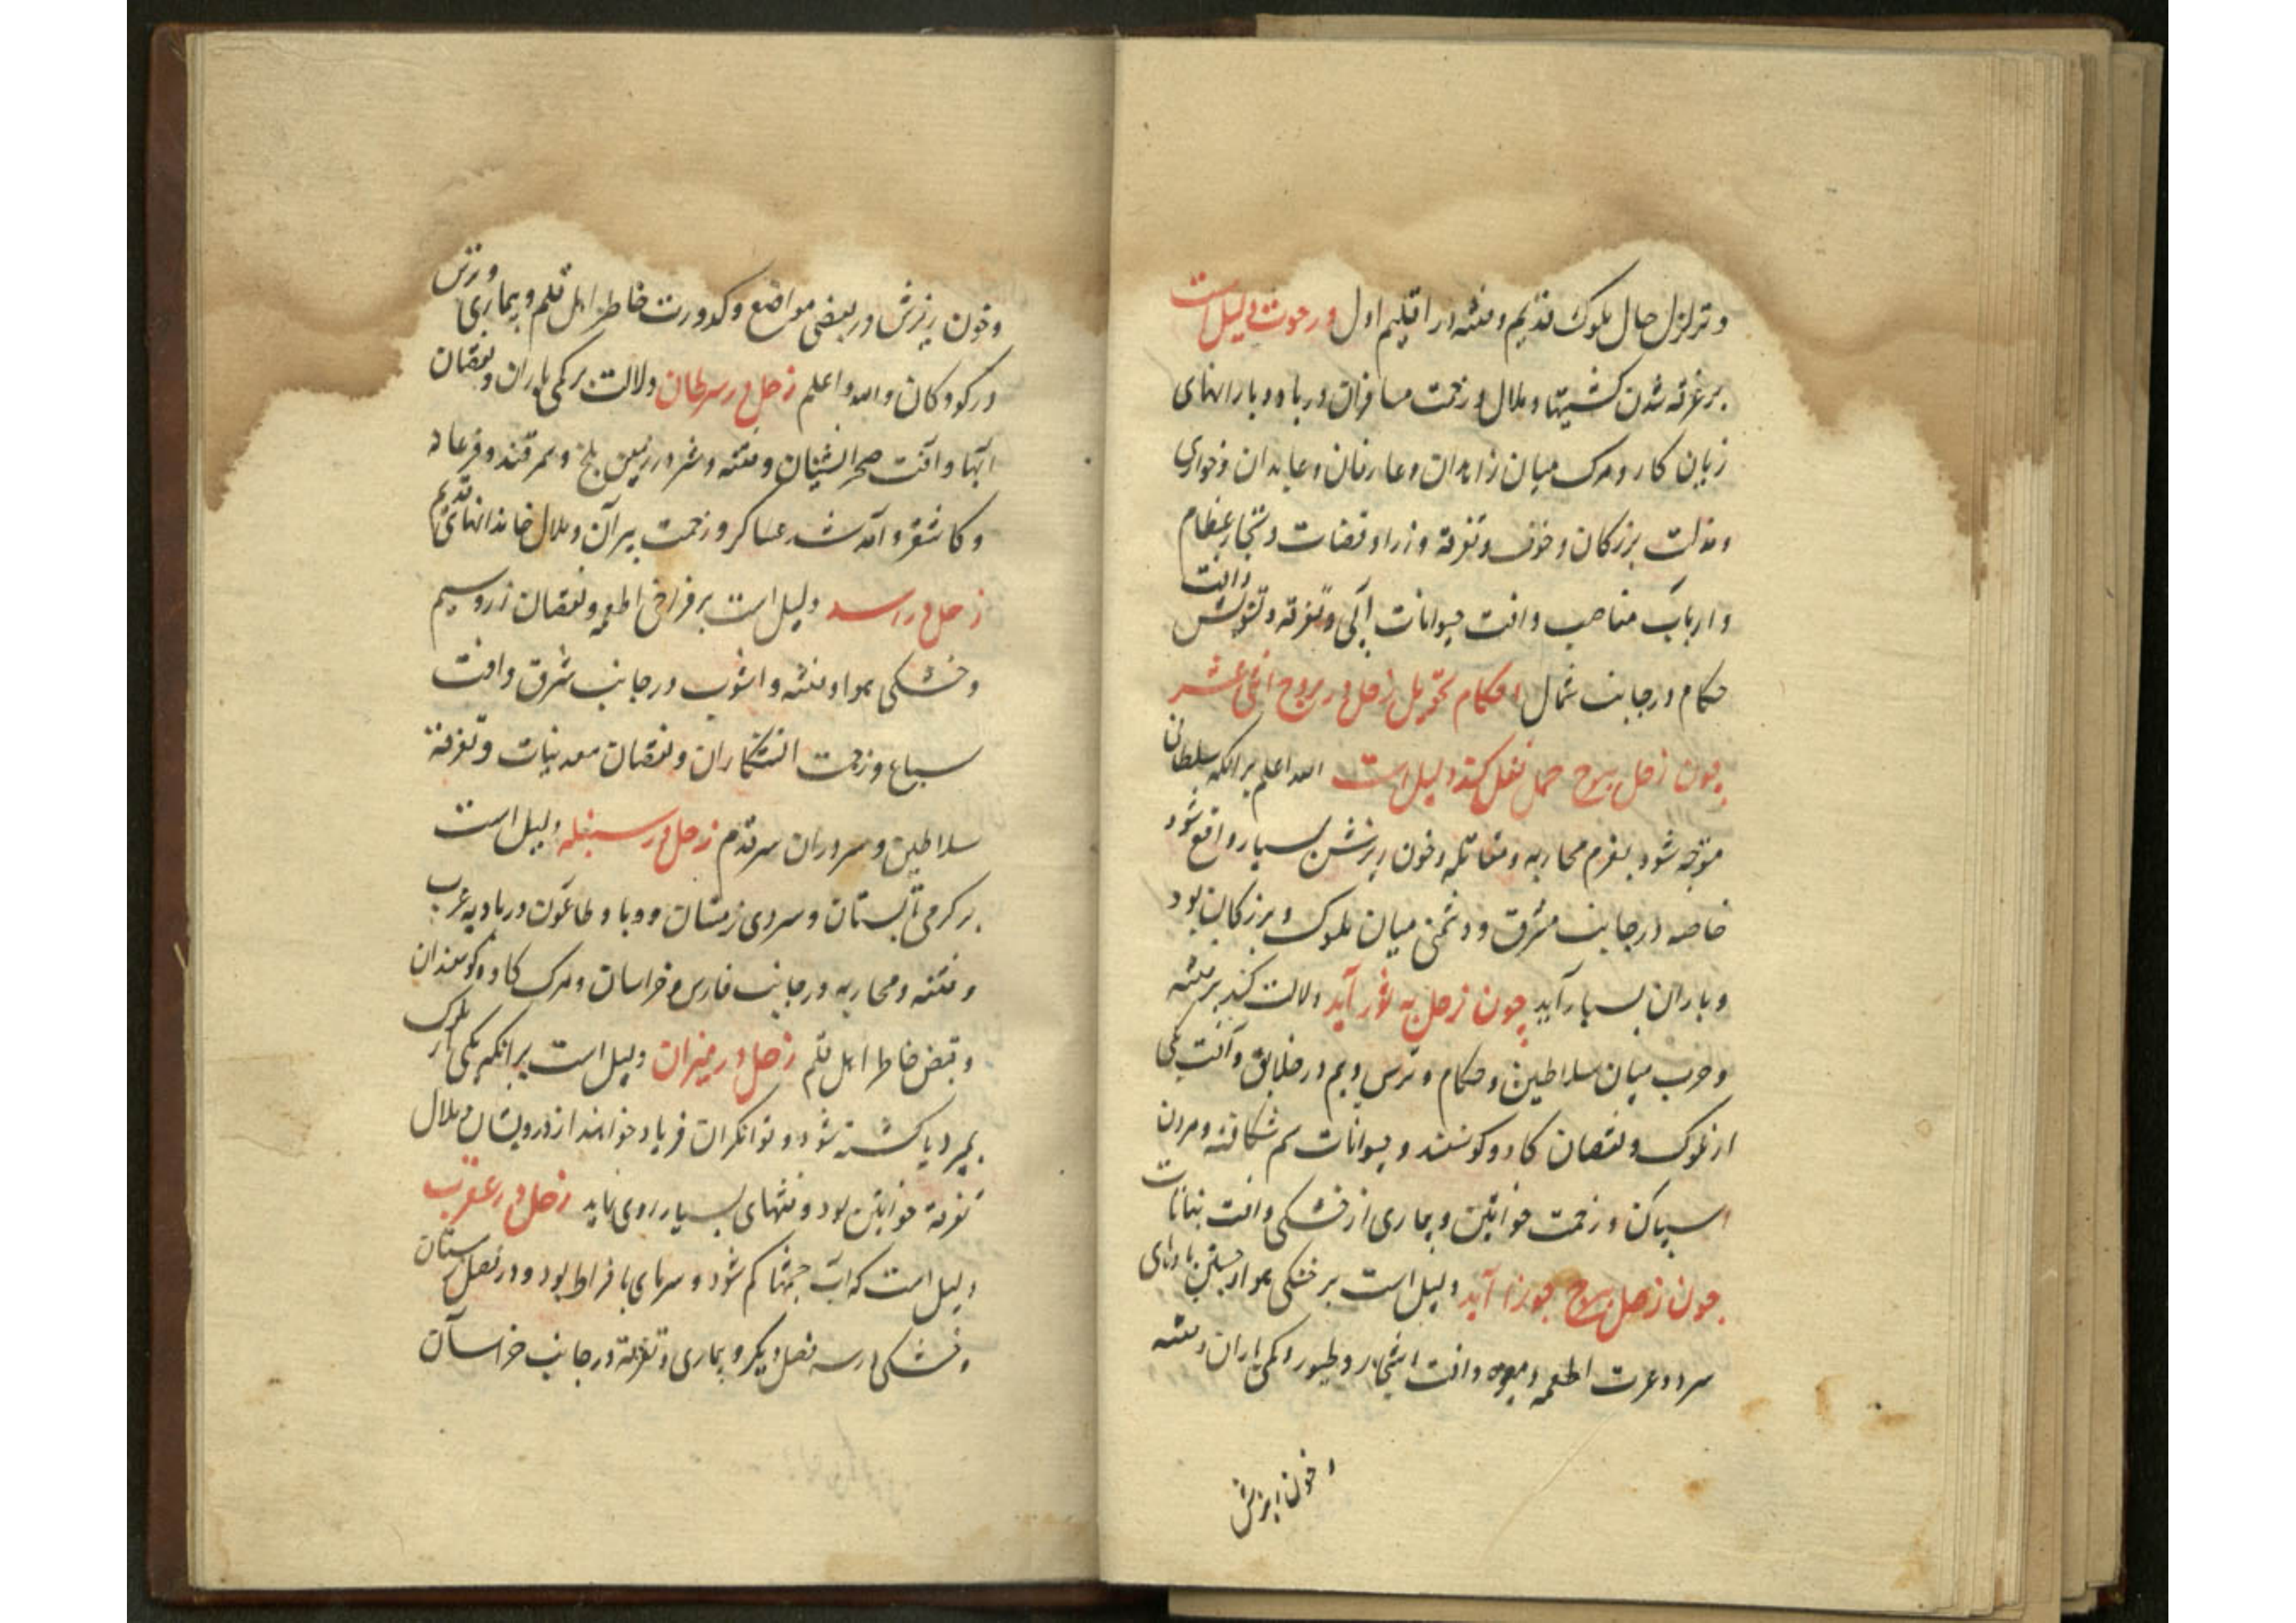 و تزلزل حال ملوک قدیم و فتنه در اقلیم اول در حوت دلیل است
بر غرقه شدن کشتیها و ملال و زحمت مسافران دریا و بارانهای
زیان کار و مرک میان زاهدان و عارفان و عابدان و خواری
و مذلت بزرکان و خوف و تفرقه وزرا و قضات و تجار عظام
و ارباب مناصب و افت حیوانات آبی و تفرقه و تشویش وافت
حکام در جانب شمال احکام تحویل زحل در بروج اثنی عشر
چون زحل ببرج حمل نقل کند دلیل است الله اعلم برانکه سلطانی
متوجه شود بعزم محاربه و مقاتله و خون ریزش بسیار واقع شود
خاصه در جانب مشرق و دشمنی میان ملوک و بزرکان بود
و باران بسیار آید چون زحل به ثور آید دلالت کند بر فتنه
و حرب میان سلاطین و حکام و ترس و بیم در خلایق و آفت یکی
از ملوک و نقصان کاو و کوسفند و حیوانات سم شکافته و مردن
اسپان و زحمت خواتین و بیماری از خشکی وافت نباتات
چون زحل ببرج جوزا آید دلیل است بر خشکی هوا و جستن بادهای
سرد و عزت اطعمه و میوه وافت اشجار و طیور و کمی باران و فتنه
و خون ریزش
و خون ریزش در بعضی مواضع و کدورت خاطر اهل قلم و بیماری و ترس
در کودکان والله اعلم زحل در سرطان دلالت بر کمی باران و نقصان
آبها وافت صحرانشینان و فتنه و شر در زمین بلخ و سمرقند و فرغانه
و کاشغر و آمد شد عساکر و زحمت پیران و ملال خاندانهای قدیم
زحل در اسد دلیل است بر فراخی اطعمه و نقصان زر و سیم
و خشکی هوا و فتنه و اشوب در جانب شرق وافت
سباع و زحمت اتشکاران و نقصان معدنیات و تفرقه
سلاطین و سروران سر قدم زحل در سنبله دلیل است
بر کرمی تابستان و سردی زمستان و وبا و طاعون در بادیه عرب
و فتنه و محاربه در جانب فارس و خراسان و مرک کاو و کوسفندان
و قبض خاطر اهل قلم زحل در میزان دلیل است برانکه یکی از ملوک
بمیرد یا کشته شود و توانکران فریاد خواهند از درویشان و ملال
تفرقه خواتین بود و فتنهای بسیار روی نماید زحل در عقرب
دلیل است که آب چشمها کم شود و سرمای بافراط بود و در فصل زمستان
و خشکی در سه فصل دیکر و بیماری و تفرقه در جانب خراسان